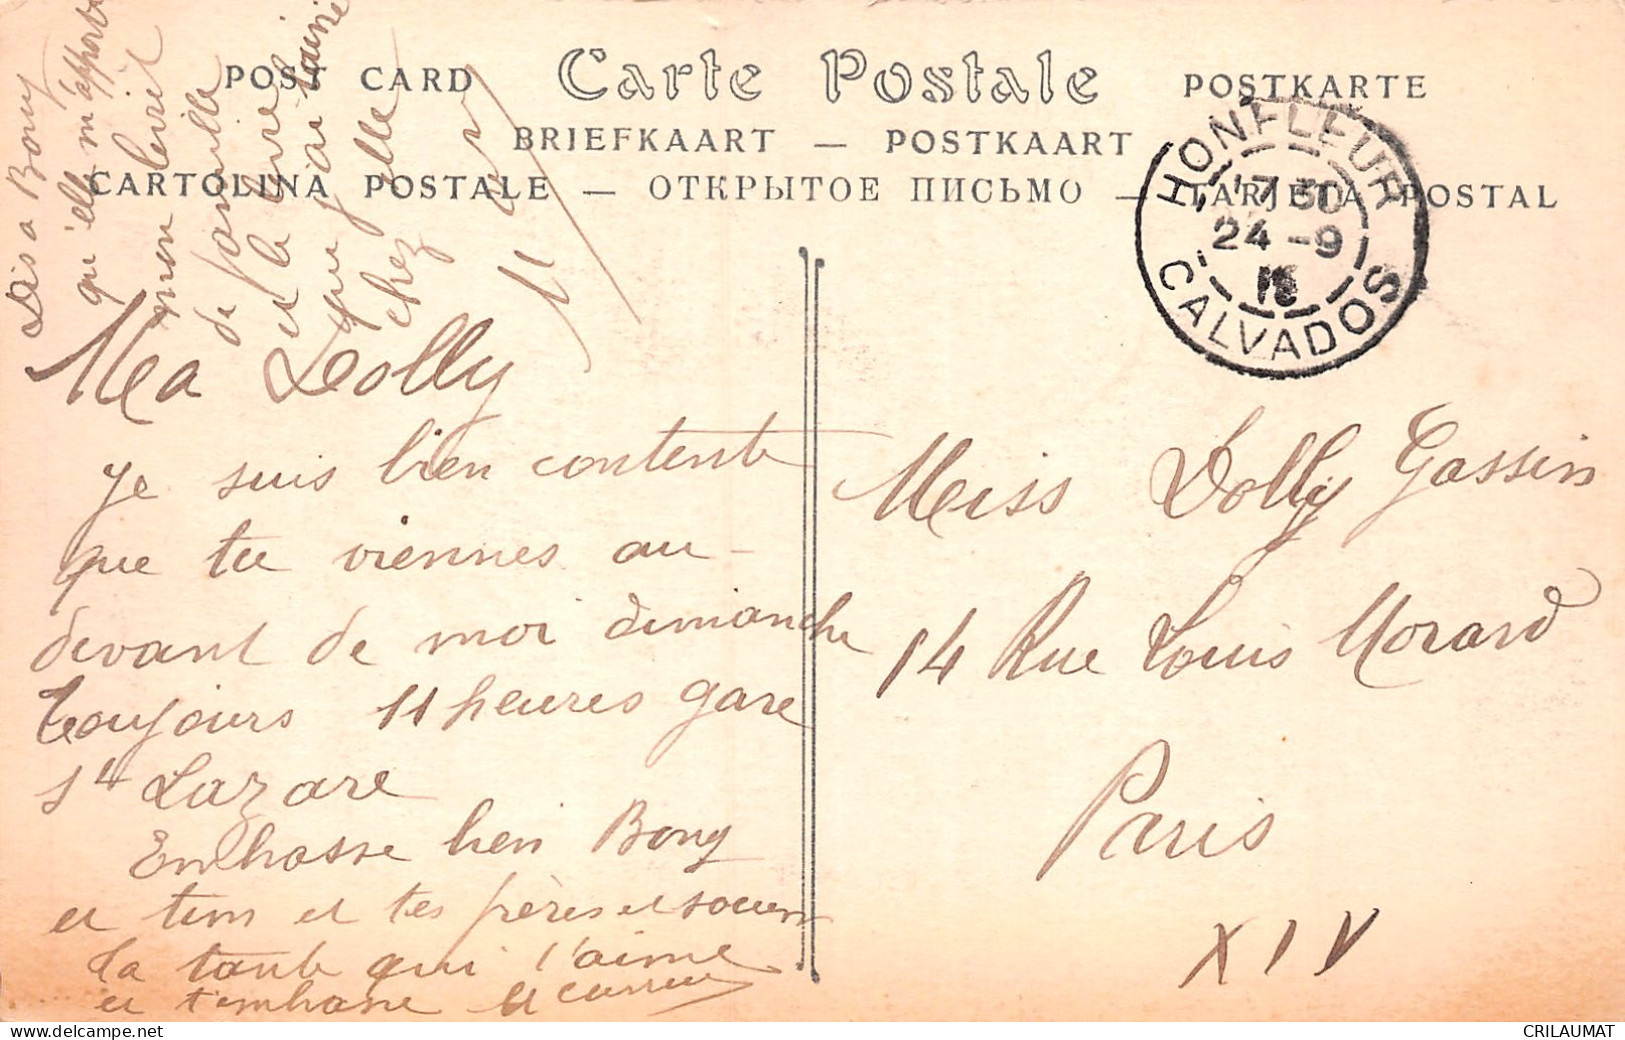 Dis a Bony
qu'elle m'apporte
mon
de famille
et le livre
que j'ai laissé
chez
POST CARD Carte Postale POSTKARTE
BRIEFKAART — POSTKAART
CARTOLINA POSTALE — ОТКРЫТОЕ ПИСЬМО — TARJETA POSTAL
HONFLEUR
7 30
24 -9
CALVADOS
Ma Dolly
je suis bien contente
que tu viennes au-
devant de moi dimanche
toujours 11 heures gare
St Lazare
Embrasse bien Bony
et tim et tes frères et soeurs
ta tante qui t'aime
et t'embrasse
Miss Dolly Gassin
14 Rue Louis Morard
Paris
XIV
CRILAUMAT